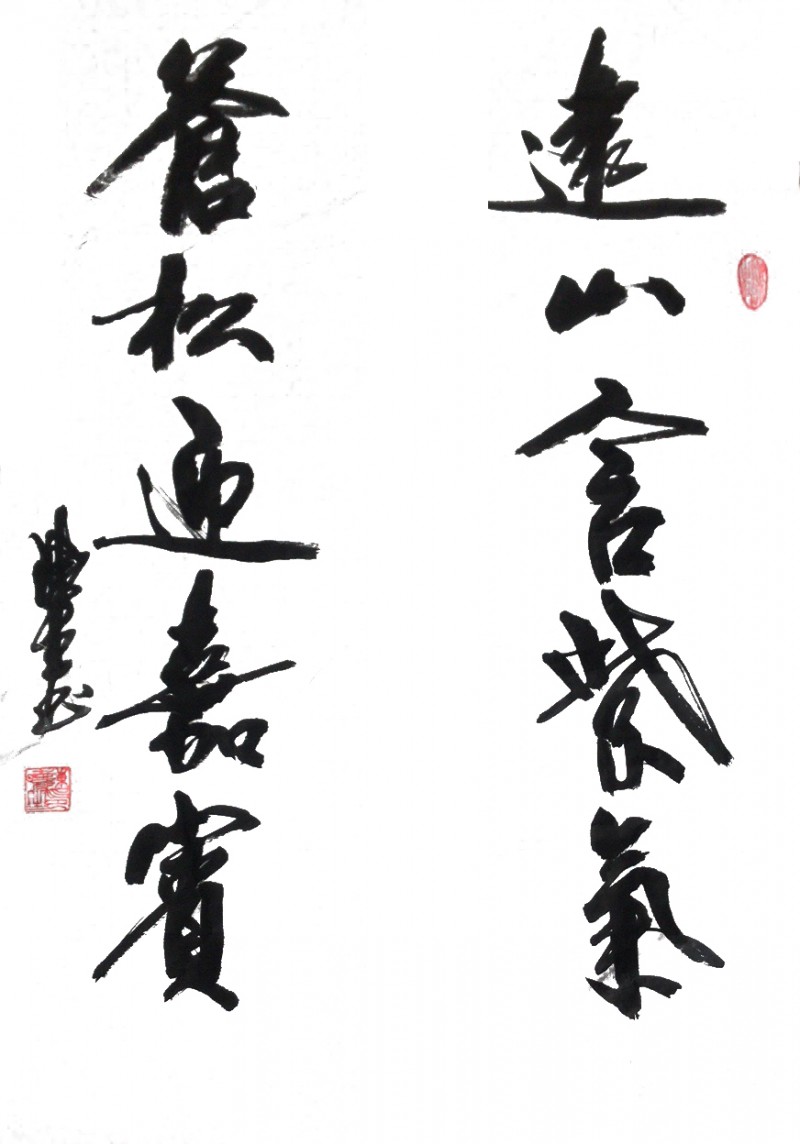 遠山含紫氣
蒼松迎嘉賓